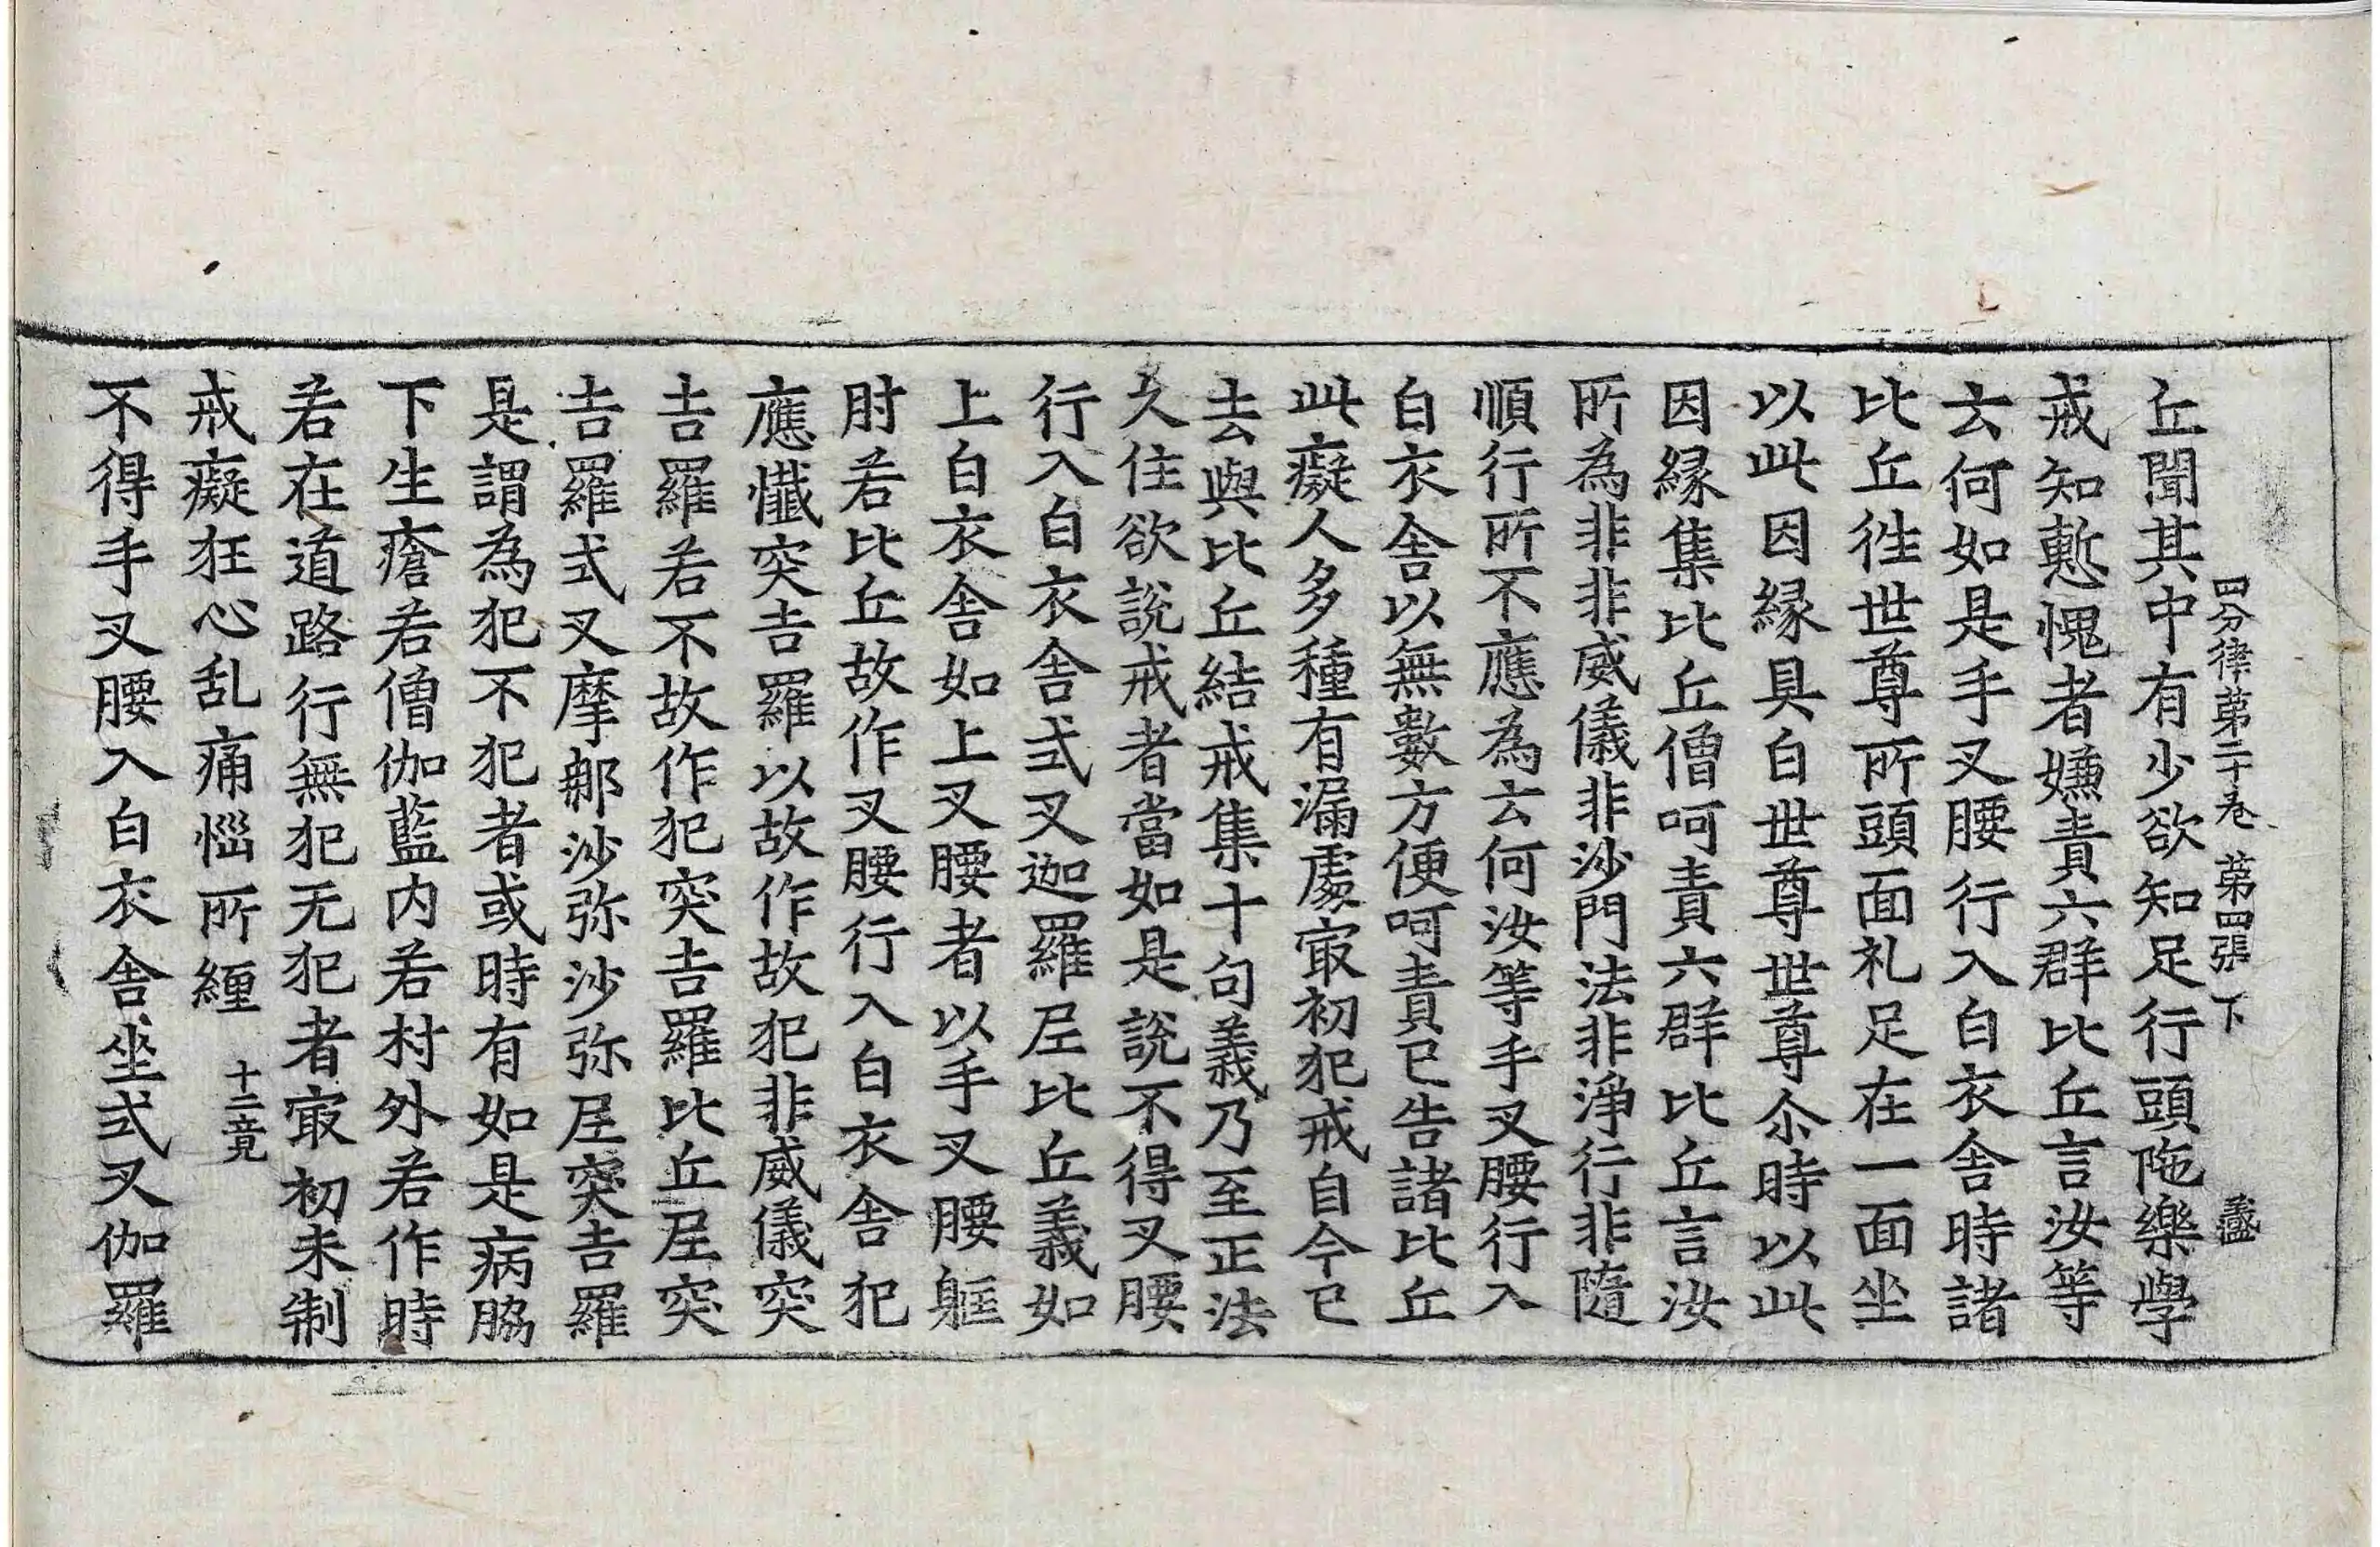 四分律第二十卷 第四張 下 盡
丘聞其中有少欲知足行頭陁樂學
戒知慙愧者嫌責六群比丘言汝等
云何如是手叉腰行入白衣舍時諸
比丘徃世尊所頭面礼足在一面坐
以此因緣具白世尊世尊尒時以此
因緣集比丘僧呵責六群比丘言汝
所為非非威儀非沙門法非淨行非隨
順行所不應為云何汝等手叉腰行入
白衣舍以無數方便呵責已告諸比丘
此癡人多種有漏處㝡初犯戒自今已
去與比丘結戒集十句義乃至正法
久住欲說戒者當如是說不得叉腰
行入白衣舍式叉迦羅尼比丘義如
上白衣舍如上叉腰者以手叉腰軭
肘若比丘故作叉腰行入白衣舍犯
應懺突吉羅以故作故犯非威儀突
吉羅若不故作犯突吉羅比丘尼突
吉羅式叉摩那沙弥沙弥尼突吉羅
是謂為犯不犯者或時有如是病脇
下生瘡若僧伽藍内若村外若作時
若在道路行無犯无犯者㝡初未制
戒癡狂心乱痛惱所纏 十二竟
不得手叉腰入白衣舍坐式叉伽羅